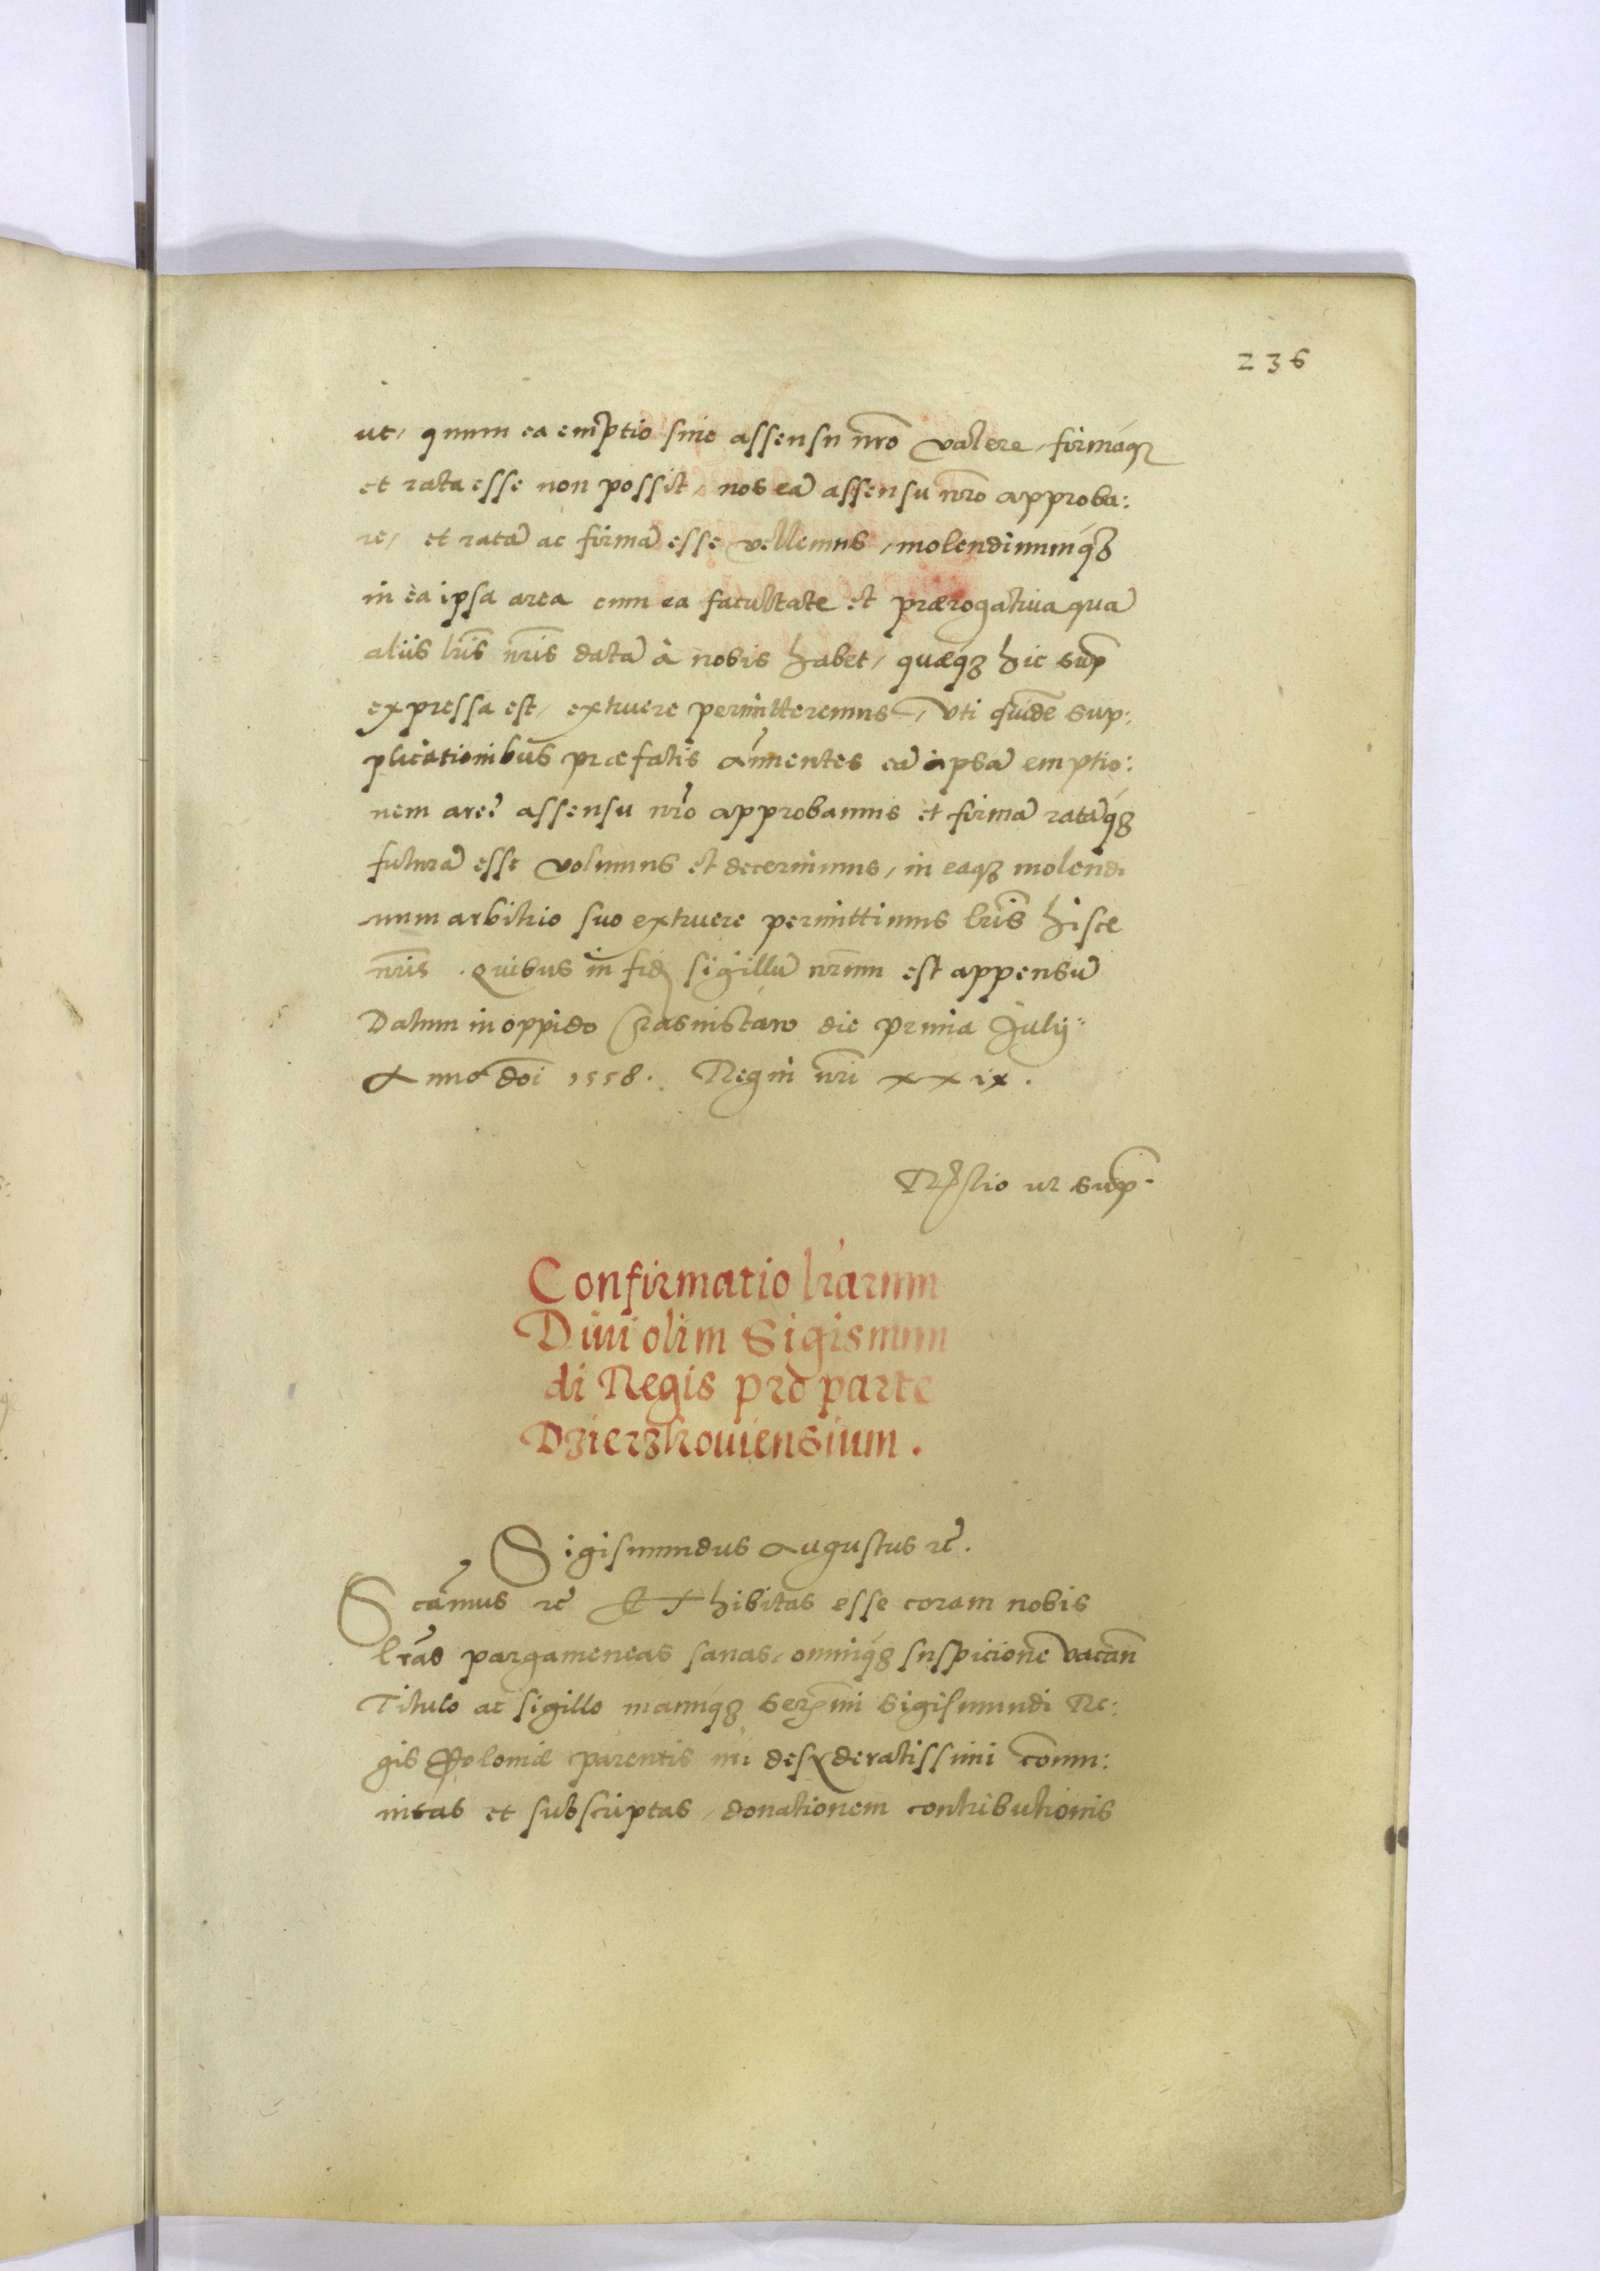 236
ut, quum ea emptio sine assensu nr̃o valere, firmáq₃
et rata esse non possit, nos eã assensu nr̃o approba:
re, et ratã ac firmã esse vellemus, molendinumq́₃
in ea ipsa area cum ea facultate et prærogatiua quã
aliis lr̃is nr̃is datã à nobis habet, quæq́₃ hic sup̃
expressa est, extruere permitteremus, Vti quidẽ sup:
plicationibus præfatis añuentes eã ipsã emptio:
nem areę assensu nr̃o approbamus et firmã ratãq́₃
futurã esse volumus et decernimus, in eaq₃ molendi
num arbitrio suo extruere permittimus lr̃is hisce
nr̃is. Quibus in fidẽ sigillũ nr̃um est appensũ
Datum in oppido Crasnistaw die prima Julij
Anno dñi 1558. Regni nr̃i xxix.
Rl̃tio ut sup̃.
Confirmatio lr̃arum
Diui olim Sigismun
di Regis pro parte
Dzierzkouiensium.
Sigismundus Augustus ꝛc̃.
Significamus ꝛc̃ Exhibitas esse coram nobis
lr̃as pargameneas sanas, omniq́₃ suspicione vacañ
Titulo ac sigillo manuq́₃ Serꝫmi Sigismundi Re:
gis Poloniæ parentis nr̃i desyderatissimi commu:
nitas et subscriptas, donationem contributionis